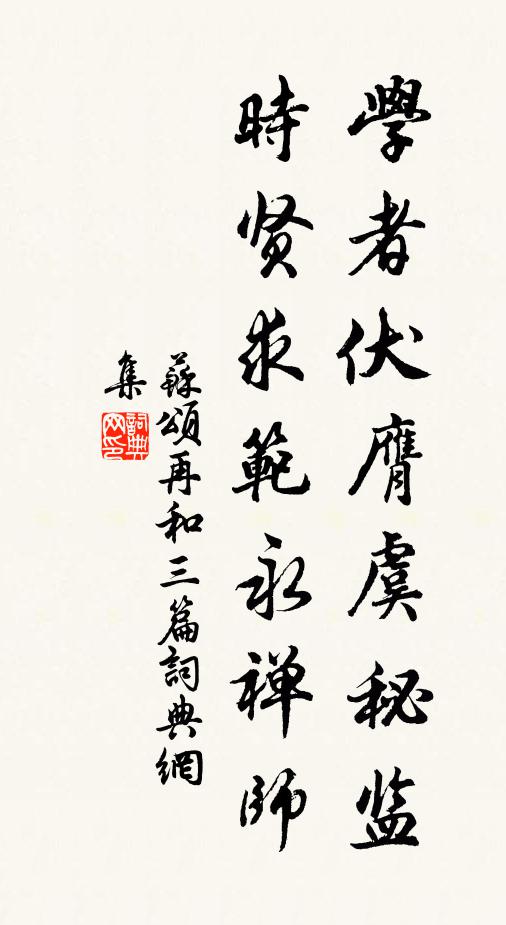 學者伏膺虞秘监
時贤求範永禅師
蘇頌再和三篇詞典網
集
詞典網印